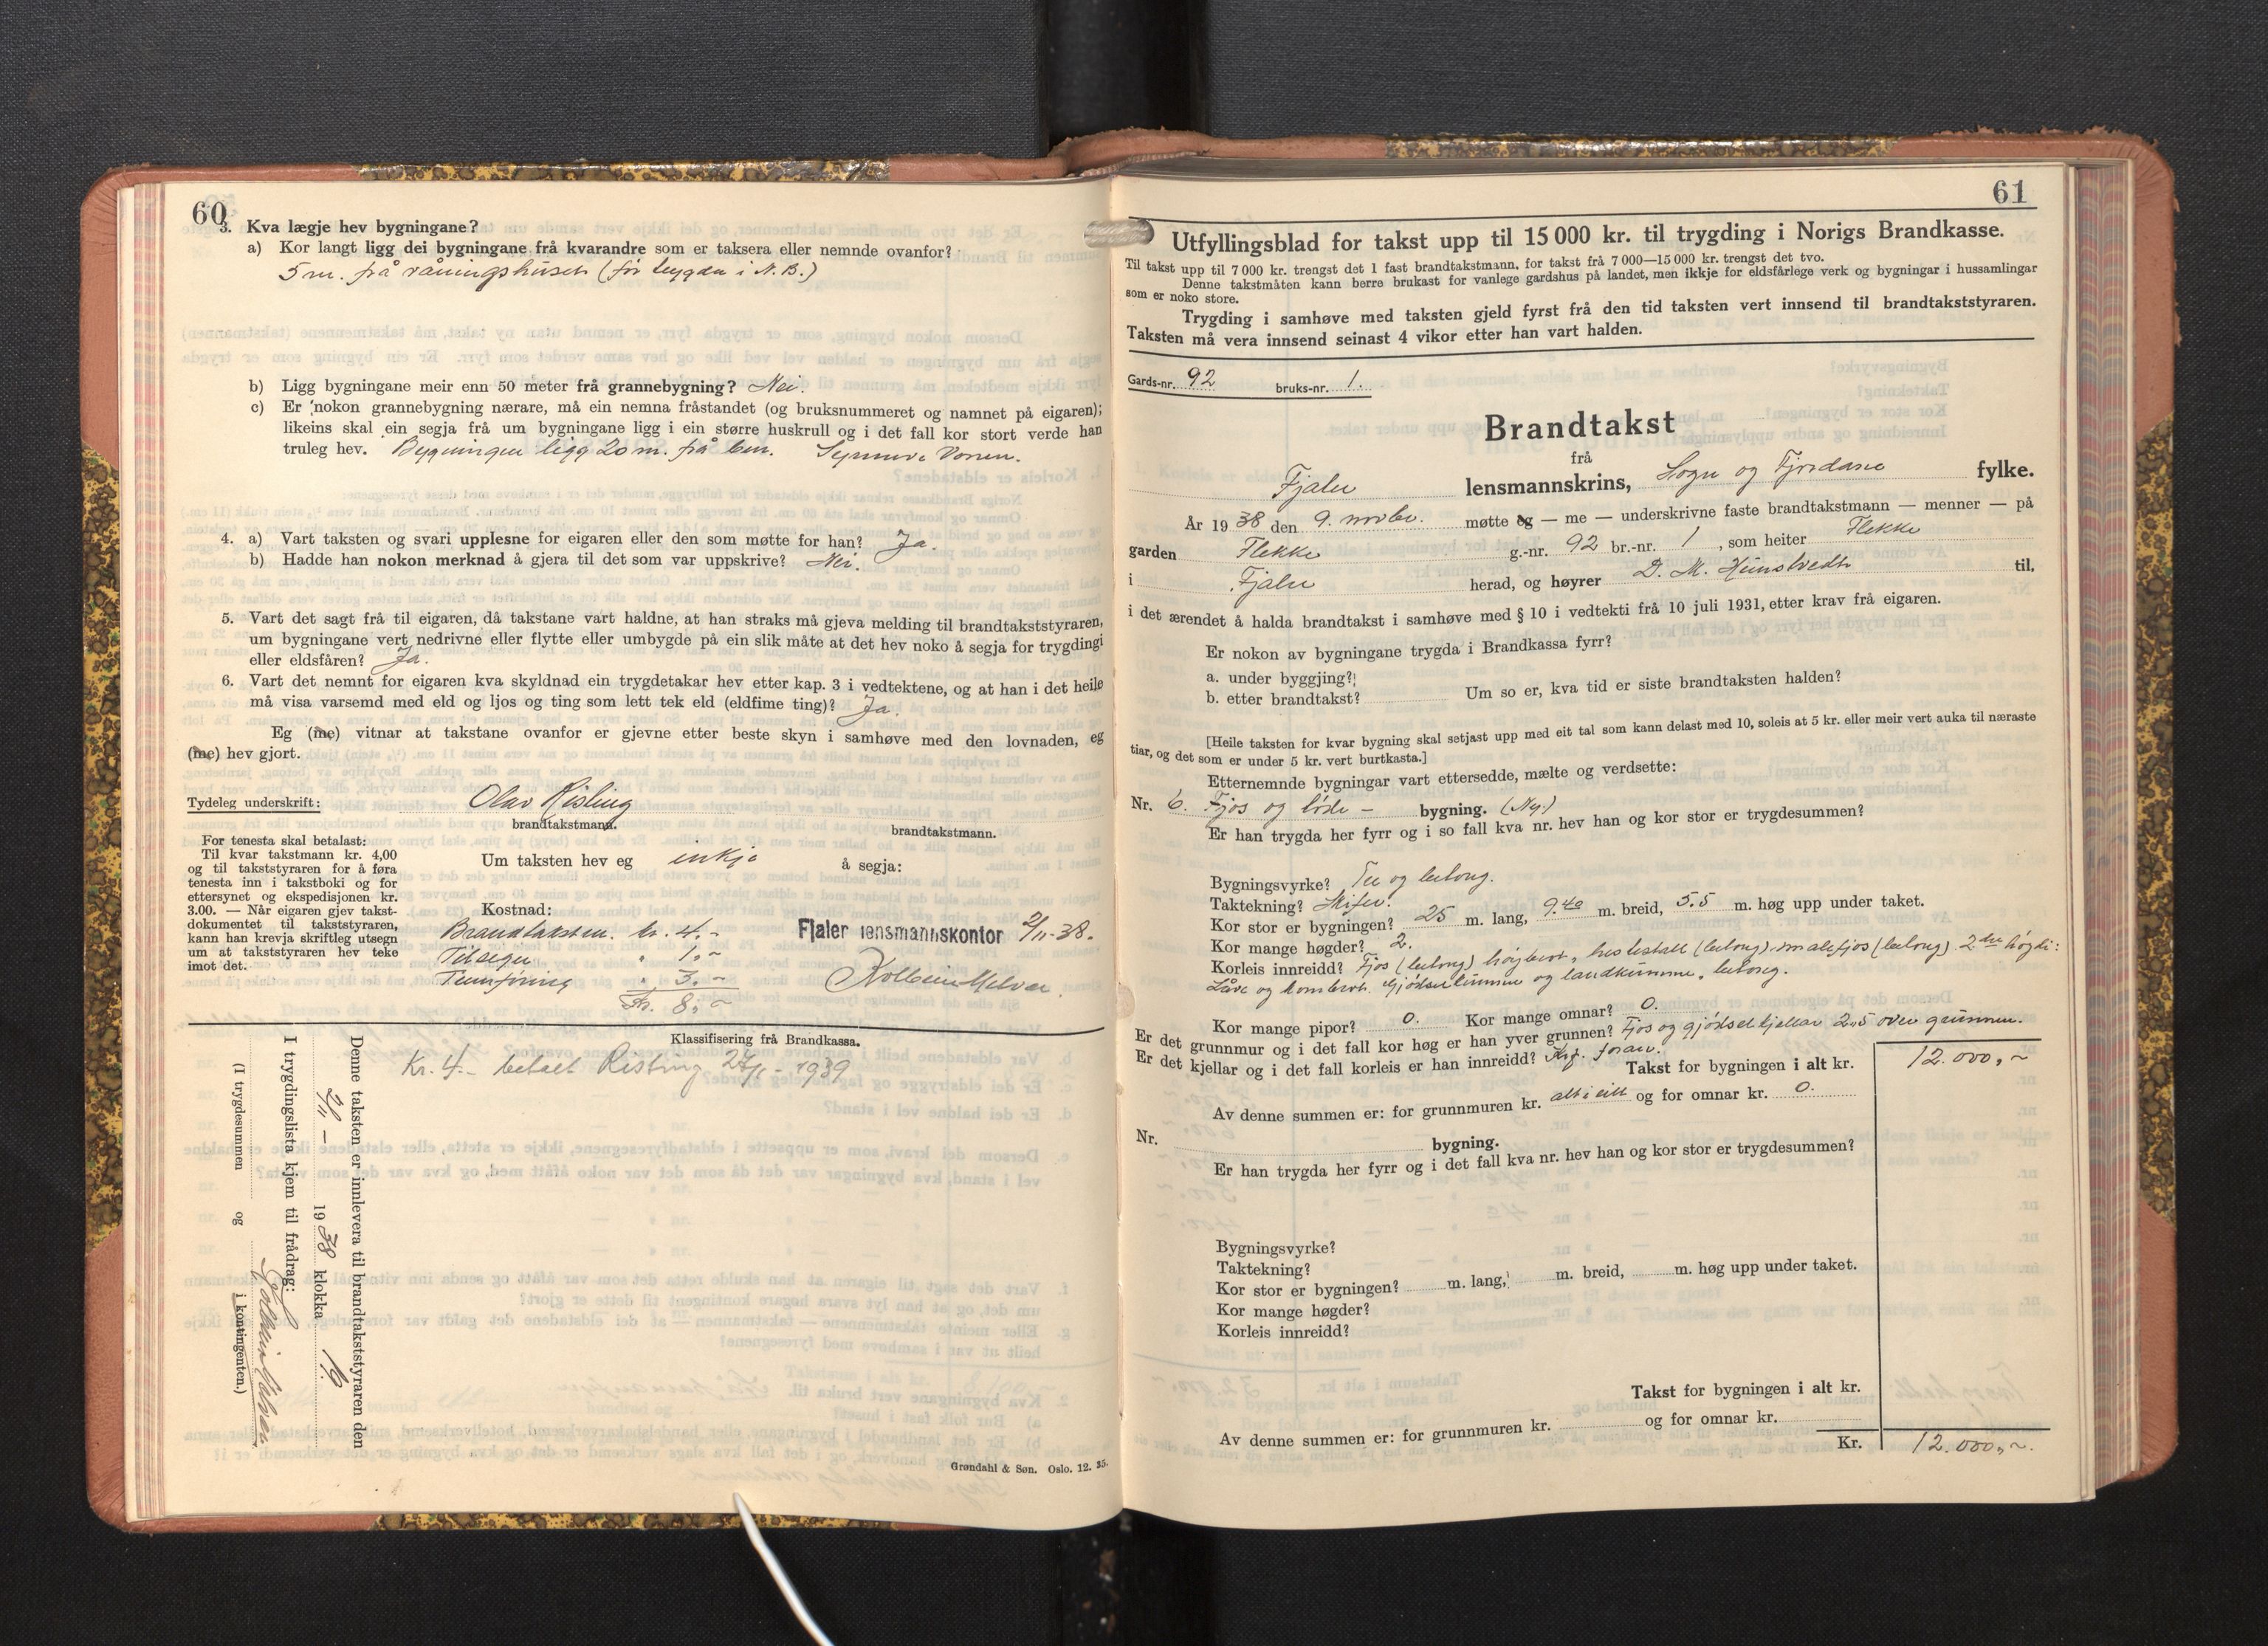 60
3. Kva lægje hev bygningane?
a) Kor langt ligg dei bygningane frå kvarandre som er taksera eller nemnde ovanfor?
5 m. frå våningshuset (før trygda i N. B.)
b) Ligg bygningane meir enn 50 meter frå grannebygning? Nei.
c) Er nokon grannebygning nærare, må ein nemna fråstandet (og bruksnummeret og namnet på eigaren);
likeins skal ein segja frå um bygningane ligg i ein større huskrull og i det fall kor stort verde han
truleg hev. Bygningen ligg 20 m. frå bnr. Synnøve Vonen.
4. a) Vart taksten og svari upplesne for eigaren eller den som møtte for han? Ja.
b) Hadde han nokon merknad å gjera til det som var uppskrive? Nei.
5. Vart det sagt frå til eigaren, då takstane vart haldne, at han straks må gjeva melding til brandtakststyraren,
um bygningane vert nedrivne eller flytte eller umbygde på ein slik måte at det hev noko å segja for trygdingi
eller eldsfåren? Ja.
6. Vart det nemnt for eigaren kva skyldnad ein trygdetakar hev etter kap. 3 i vedtektene, og at han i det heile
må visa varsemd med eld og ljos og ting som lett tek eld (eldfime ting)? Ja.
Eg (me) vitnar at takstane ovanfor er gjevne etter beste skyn i samhøve med den lovnaden, eg
(me) hev gjort.
Tydeleg underskrift: Olav Risting
brandtakstmann. brandtakstmann.
For tenesta skal betalast:
Til kvar takstmann kr. 4,00
og til takststyraren for å føra
tenesta inn i takstboki og for
ettersynet og ekspedisjonen kr.
3.00. — Når eigaren gjev takst-
dokumentet til takststyraren,
kann han krevja skriftleg utsegn
um at takststyraren hev teke
imot det.
Um taksten hev eg inkje å segja:
Kostnad:
Brandtakstm. kr. 4.-
1.-
3.-
Kr. 8.-
Fjaler lensmannskontor 2/11-38.
Kolbein Melvær
Klassifisering frå Brandkassa.
Kr. 4.- betalt Risting 24/1 - 1939
Denne taksten er innlevera til brandtakststyraren den
2/11 - 1938 klokka 19
I trygdingslista kjem til frådrag:
(I trygdesummen og i kontingenten.)
Kolbein Melvær
Grøndahl & Søn. Oslo. 12. 35.
61
Utfyllingsblad for takst upp til 15 000 kr. til trygding i Norigs Brandkasse.
Til takst upp til 7 000 kr. trengst det 1 fast brandtakstmann, for takst frå 7 000—15 000 kr. trengst det tvo.
Denne takstmåten kann berre brukast for vanlege gardshus på landet, men ikkje for eldsfårlege verk og bygningar i hussamlingar
som er noko store.
Trygding i samhøve med taksten gjeld fyrst frå den tid taksten vert innsend til brandtakststyraren.
Taksten må vera innsend seinast 4 vikor etter han vart halden.
Gards-nr. 92 bruks-nr. 1.
Brandtakst
frå
Fjaler lensmannskrins, Sogn og Fjordane fylke.
År 1938 den 9. novbr. møtte eg — me — underskrivne faste brandtakstmann — menner — på
garden Flekke g.-nr. 92 br.-nr. 1, som heiter Flekke
i Fjaler herad, og høyrer D. M. Heimstvedt til,
i det ærendet å halda brandtakst i samhøve med § 10 i vedtekti frå 10 juli 1931, etter krav frå eigaren.
Er nokon av bygningane trygda i Brandkassa fyrr?
a. under byggjing?
b. etter brandtakst? Um so er, kva tid er siste brandtaksten halden?
[Heile taksten for kvar bygning skal setjast upp med eit tal som kann delast med 10, soleis at 5 kr. eller meir vert auka til næraste
tiar, og det som er under 5 kr. vert burtkasta.]
Etternemnde bygningar vart ettersedde, mælte og verdsette:
Nr. 6. Fjøs og løde - bygning. (Ny.)
Er han trygda her fyrr og i so fall kva nr. hev han og kor stor er trygdesummen?
Bygningsvyrke? Tre og betong.
Taktekning? Skifer.
Kor stor er bygningen? 25 m. lang, 9.40 m. breid, 5.5 m. høg upp under taket.
Kor mange høgder? 2.
Korleis innreidd? Fjøs (betong) høybrot, hestestall (betong), smalefjøs (betong). 2dre høgdi:
Låve og kornbrot. Gjødselkumme og landkumme, betong.
Kor mange pipor? 0. Kor mange omnar? 0.
Er det grunnmur og i det fall kor høg er han yver grunnen? Fjøs og gjødselkjellar 2,5 over grunnen.
Er det kjellar og i det fall korleis er han innreidd? Krf. foran.
Takst for bygningen i alt kr. 12.000,-
Av denne summen er: for grunnmuren kr. alt i eitt og for omnar kr. 0.
Nr. bygning.
Er han trygda her fyrr og i det fall kva nr. hev han og kor stor er trygdesummen?
Bygningsvyrke?
Taktekning?
Kor stor er bygningen? m. lang, m. breid, m. høg upp under taket.
Kor mange høgder?
Korleis innreidd?
Takst for bygningen i alt kr.
Av denne summen er: for grunnmuren kr. og for omnar kr.
Kr. 12.000,-.